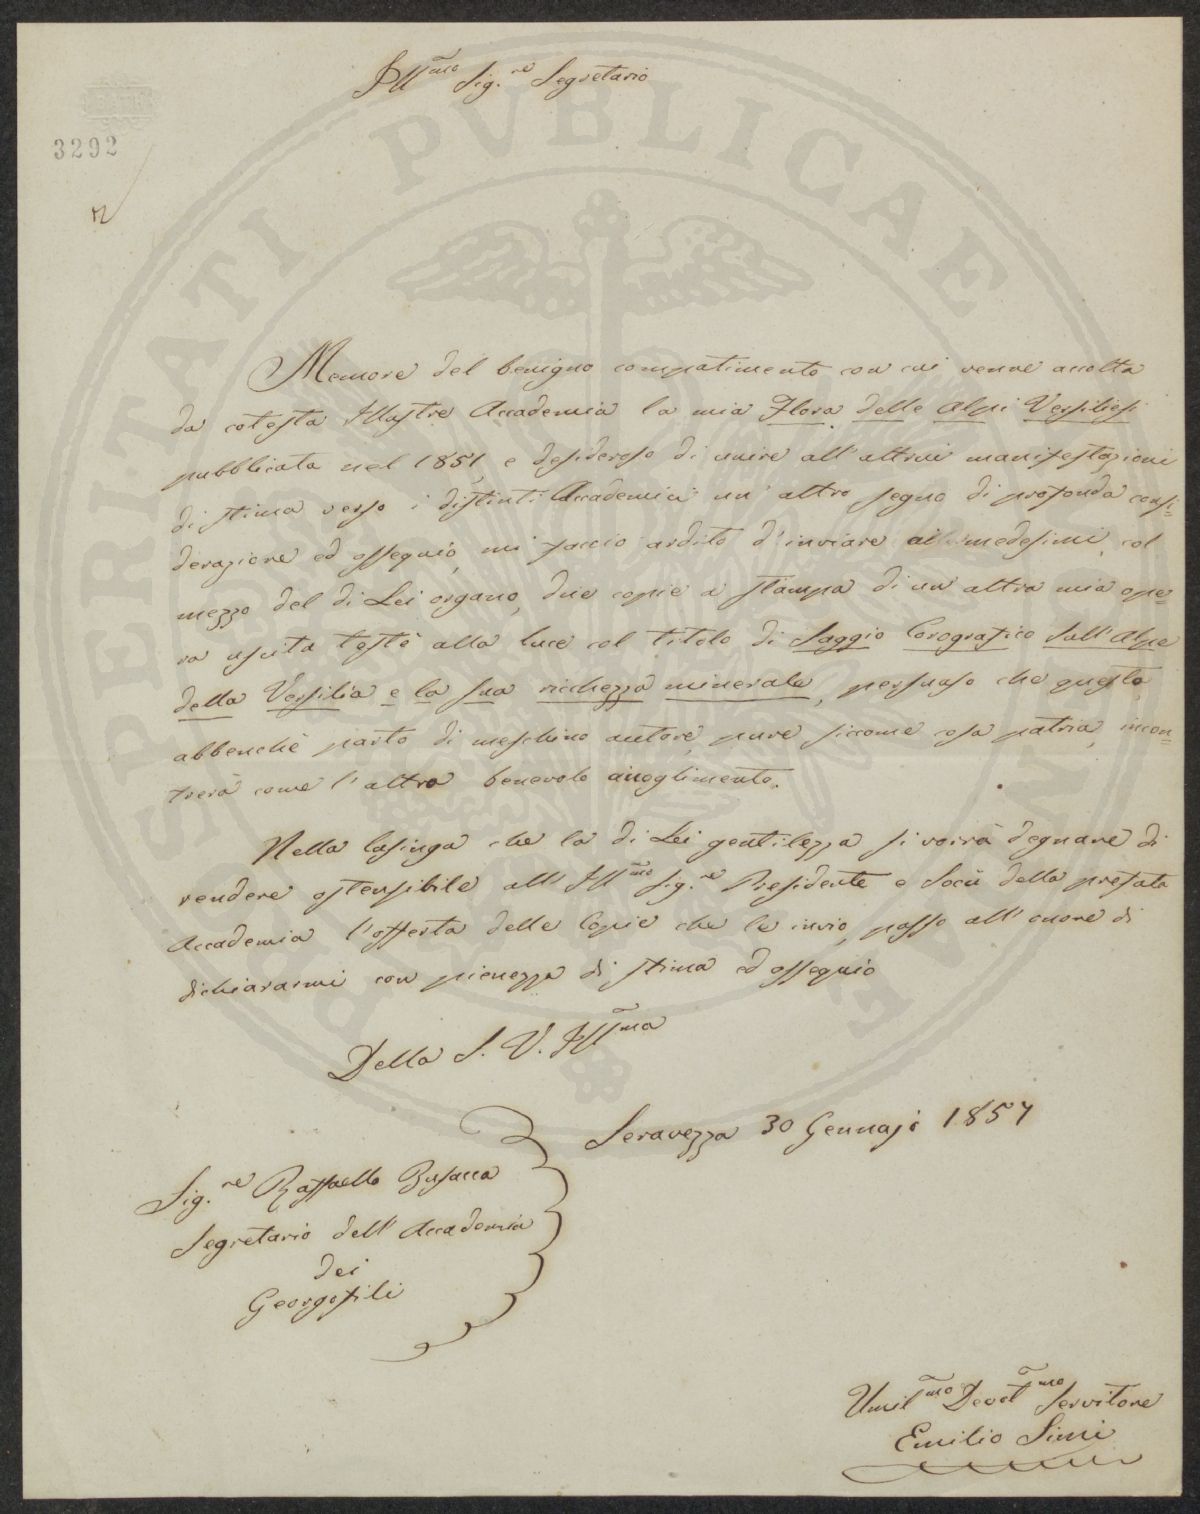 Ill.mo Sig.re Segretario
3292
Memore del benigno compatimento con cui venne accolta
da cotesta Illustre Accademia la mia Flora delle Alpi Versiliesi
pubblicata nel 1851, e desideroso di unire all'altrui manifestazioni
di stima verso i distinti Accademici un'altro segno di profonda consi=
derazione ed ossequio, mi faccio ardito d'inviare ai medesimi, col
mezzo del di Lei organo, due copie a stampa di un'altra mia ope=
ra uscita testè alla luce col titolo di Saggio Corografico sull'Alpe
della Versilia e la sua ricchezza minerale, persuaso che questa
abbenchè parto di meschino autore, pure siccome cosa patria, incon=
trerà come l'altra benevolo accoglimento.
Nella lusinga che la di Lei gentilezza si vorrà degnare di
rendere ostensibile all'Ill.mo Sig.re Presidente e Socii della prefata
Accademia l'offerta delle Copie che le invio, passo all'onore di
dichiararmi con pienezza di stima ed ossequio
Della S. V. Ill.ma
Seravezza 30 Gennajo 1857
Sig.re Raffaello Busacca
Segretario dell'Accademia
dei
Georgofili
Umil.mo Devot.mo Servitore
Emilio Simi
PROSPERITATI PVBLICAE